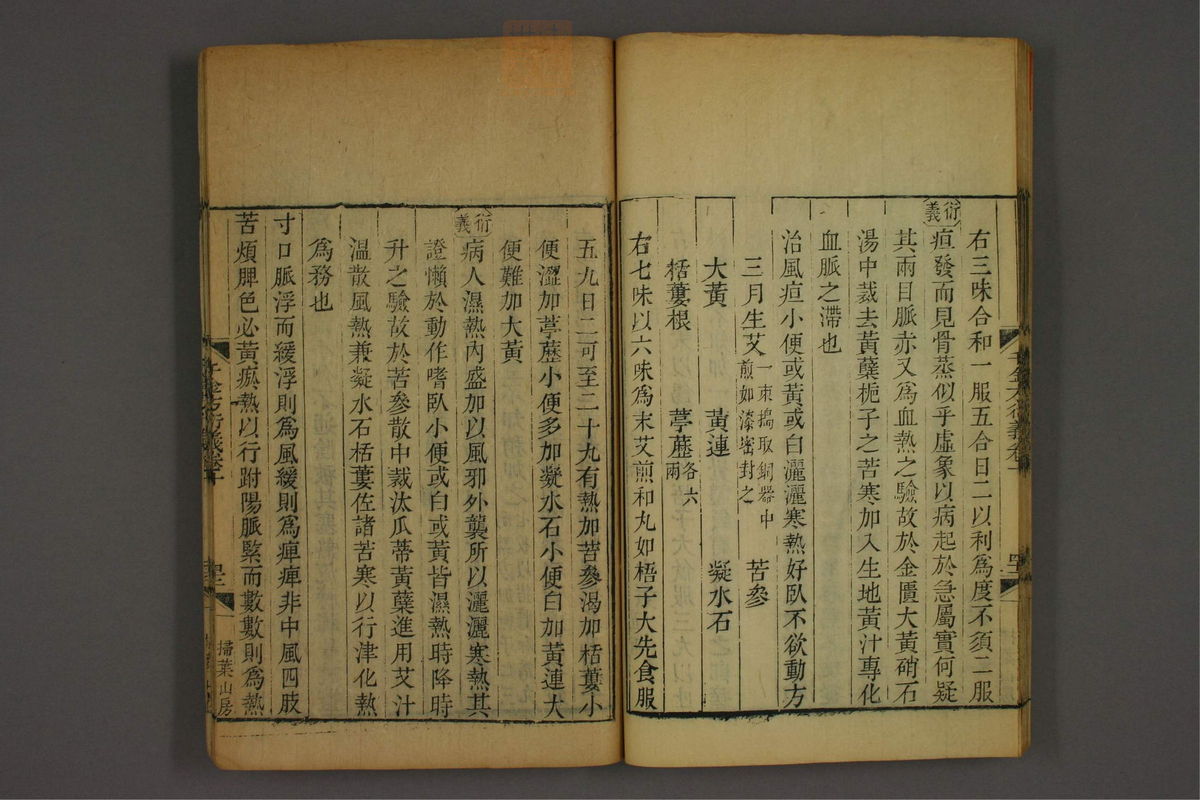 右三味合和一服五合日二以利爲度不須二服
衍義
疸發而見骨蒸似乎虛象以病起於急屬實何疑
其兩目脈赤又爲血熱之驗故於金匱大黃硝石
湯中裁去黃蘗梔子之苦寒加入生地黃汁專化
血脈之滯也
治風疸小便或黃或白灑灑寒熱好臥不欲動方
三月生艾一束搗取銅器中煎如漆密封之 苦參
大黃 黃連 凝水石
栝蔞根 葶藶各六兩
右七味以六味爲末艾煎和丸如梧子大先食服
五九日二可至二十九有熱加苦參渴加栝蔞小
便澀加葶藶小便多加凝水石小便白加黃連大
便難加大黃
衍義
病人濕熱內盛加以風邪外襲所以灑灑寒熱其
證懶於動作嗜臥小便或白或黃皆濕熱時降時
升之驗故於苦參散中裁汰瓜蒂黃蘗進用艾汁
溫散風熱兼凝水石栝蔞佐諸苦寒以行津化熱
爲務也
寸口脈浮而緩浮則爲風緩則爲痺痺非中風四肢
苦煩脾色必黃瘀熱以行趺陽脈緊而數數則爲熱
千金方衍義卷十
掃葉山房